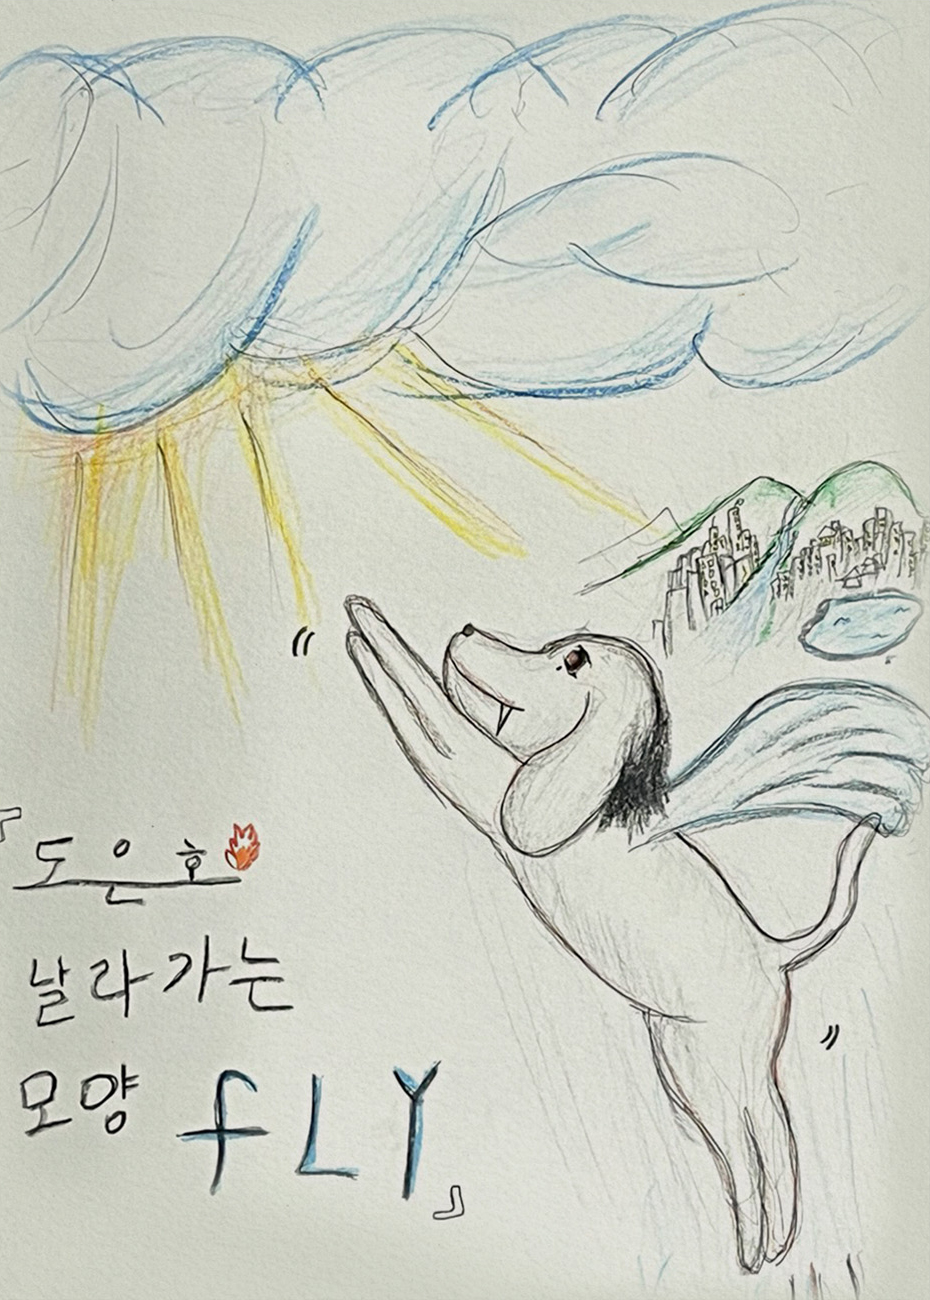 『도은호
날라가는
모양 fLY』